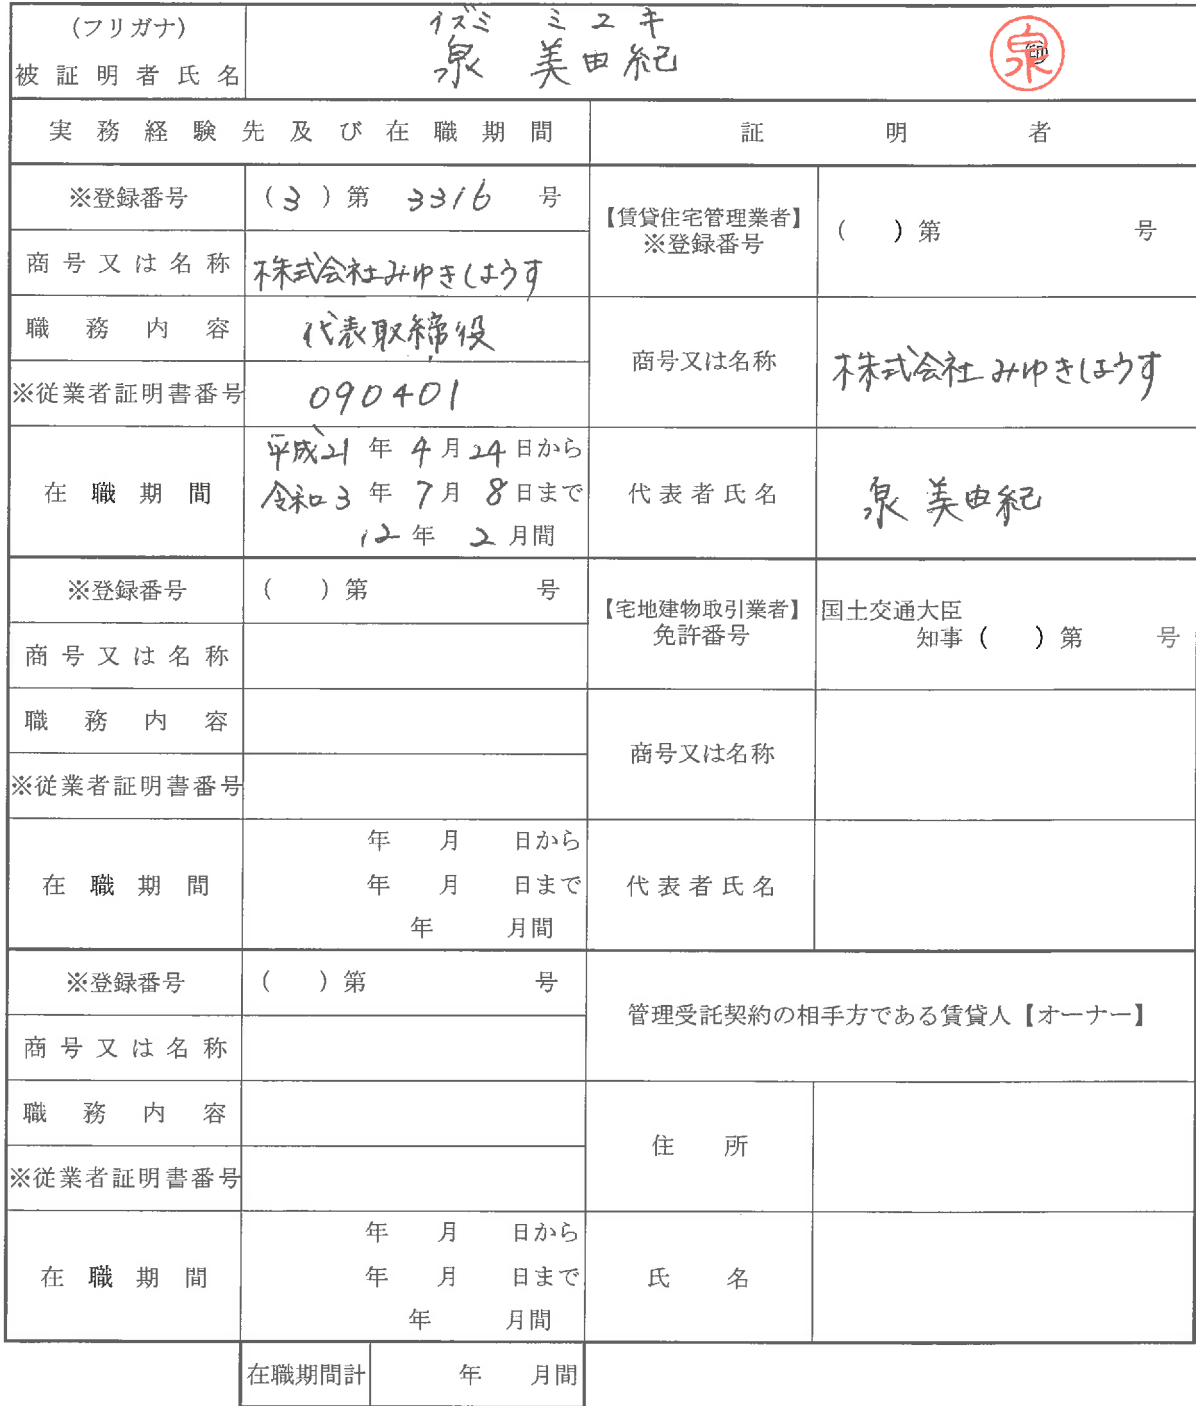 (フリガナ) イズミ ミユキ
被証明者氏名 泉 美由紀 ㊞ 泉
実務経験先及び在職期間 証明者
※登録番号 (3)第 3316 号
【賃貸住宅管理業者】
※登録番号 ( )第 号
商号又は名称 株式会社みゆきはうす
職務内容 代表取締役
商号又は名称 株式会社みゆきはうす
※従業者証明書番号 090401
在職期間
平成21年4月24日から
令和3年7月8日まで
12年2月間
代表者氏名 泉 美由紀
※登録番号 ( )第 号
【宅地建物取引業者】
免許番号
国土交通大臣
知事( )第 号
商号又は名称
職務内容
商号又は名称
※従業者証明書番号
在職期間
年 月 日から
年 月 日まで
年 月間
代表者氏名
※登録番号 ( )第 号
管理受託契約の相手方である賃貸人【オーナー】
商号又は名称
職務内容
住所
※従業者証明書番号
在職期間
年 月 日から
年 月 日まで
年 月間
氏名
在職期間計 年 月間